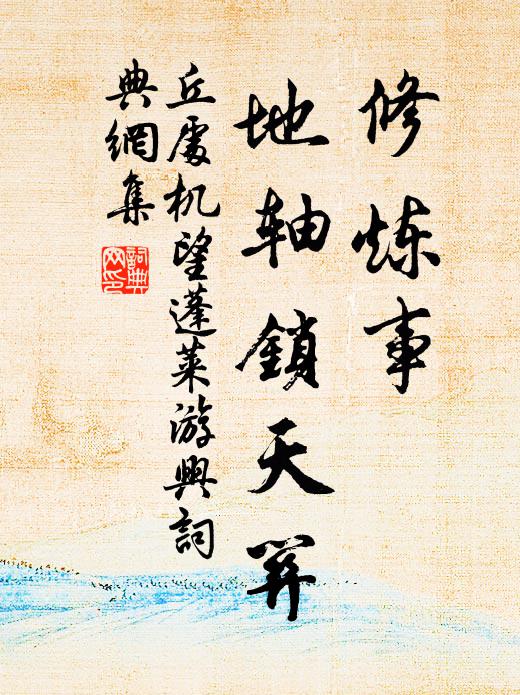 修炼事
地軸鎖天關
丘處机望蓬萊游興詞
典網集
詞典网印